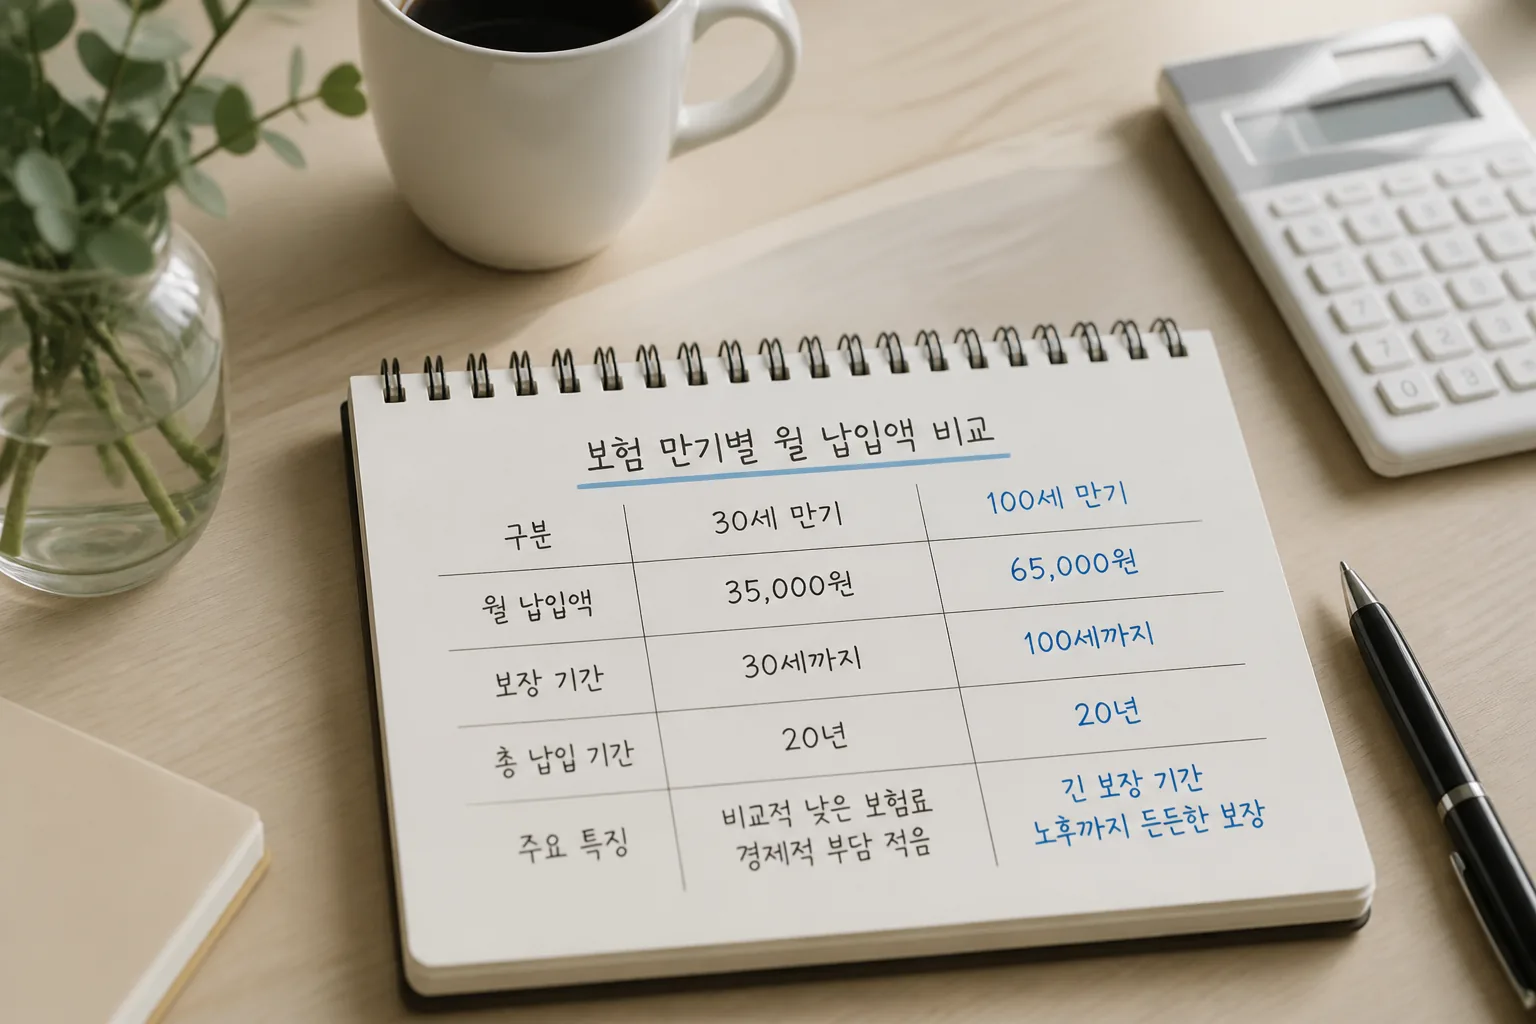 보험 만기별 월 납입액 비교
구분 30세 만기 100세 만기
월 납입액 35,000원 65,000원
보장 기간 30세까지 100세까지
총 납입 기간 20년 20년
주요 특징 비교적 낮은 보험료 긴 보장 기간
경제적 부담 적음 노후까지 든든한 보장